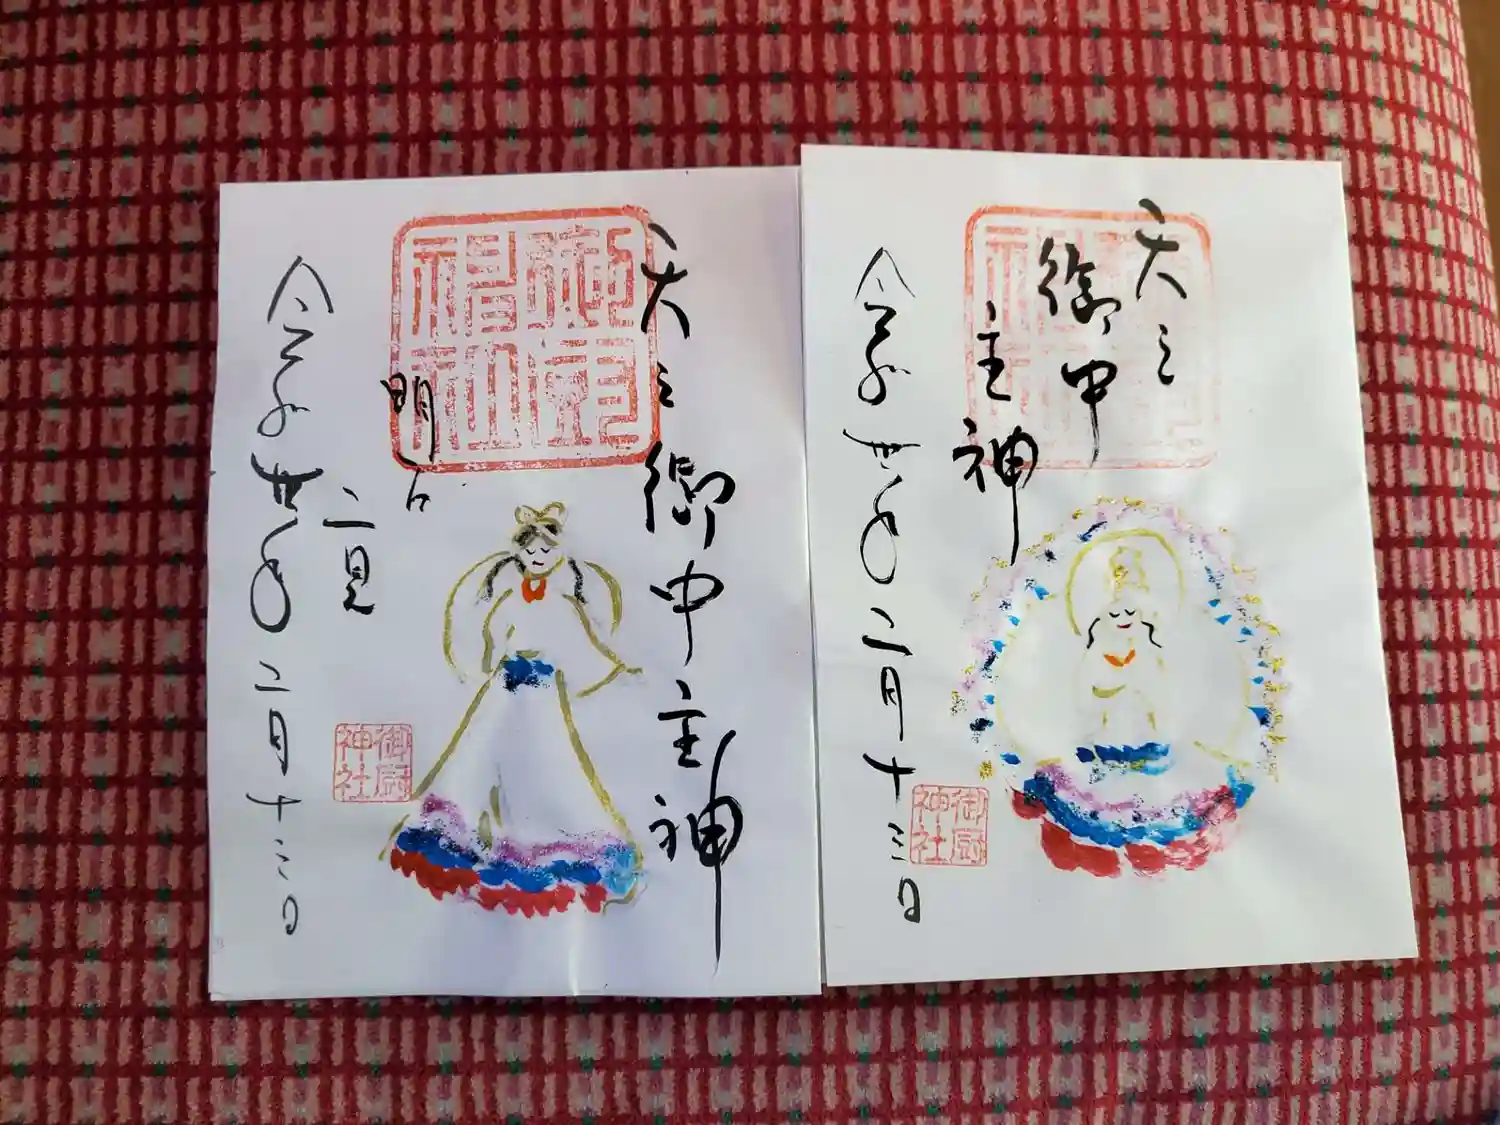 天之御中主神
御厨
神社
明石
二見
御厨
神社
令和 年二月十三日
天之
御中
主神
御厨
神社
御厨
神社
令和 年二月十三日